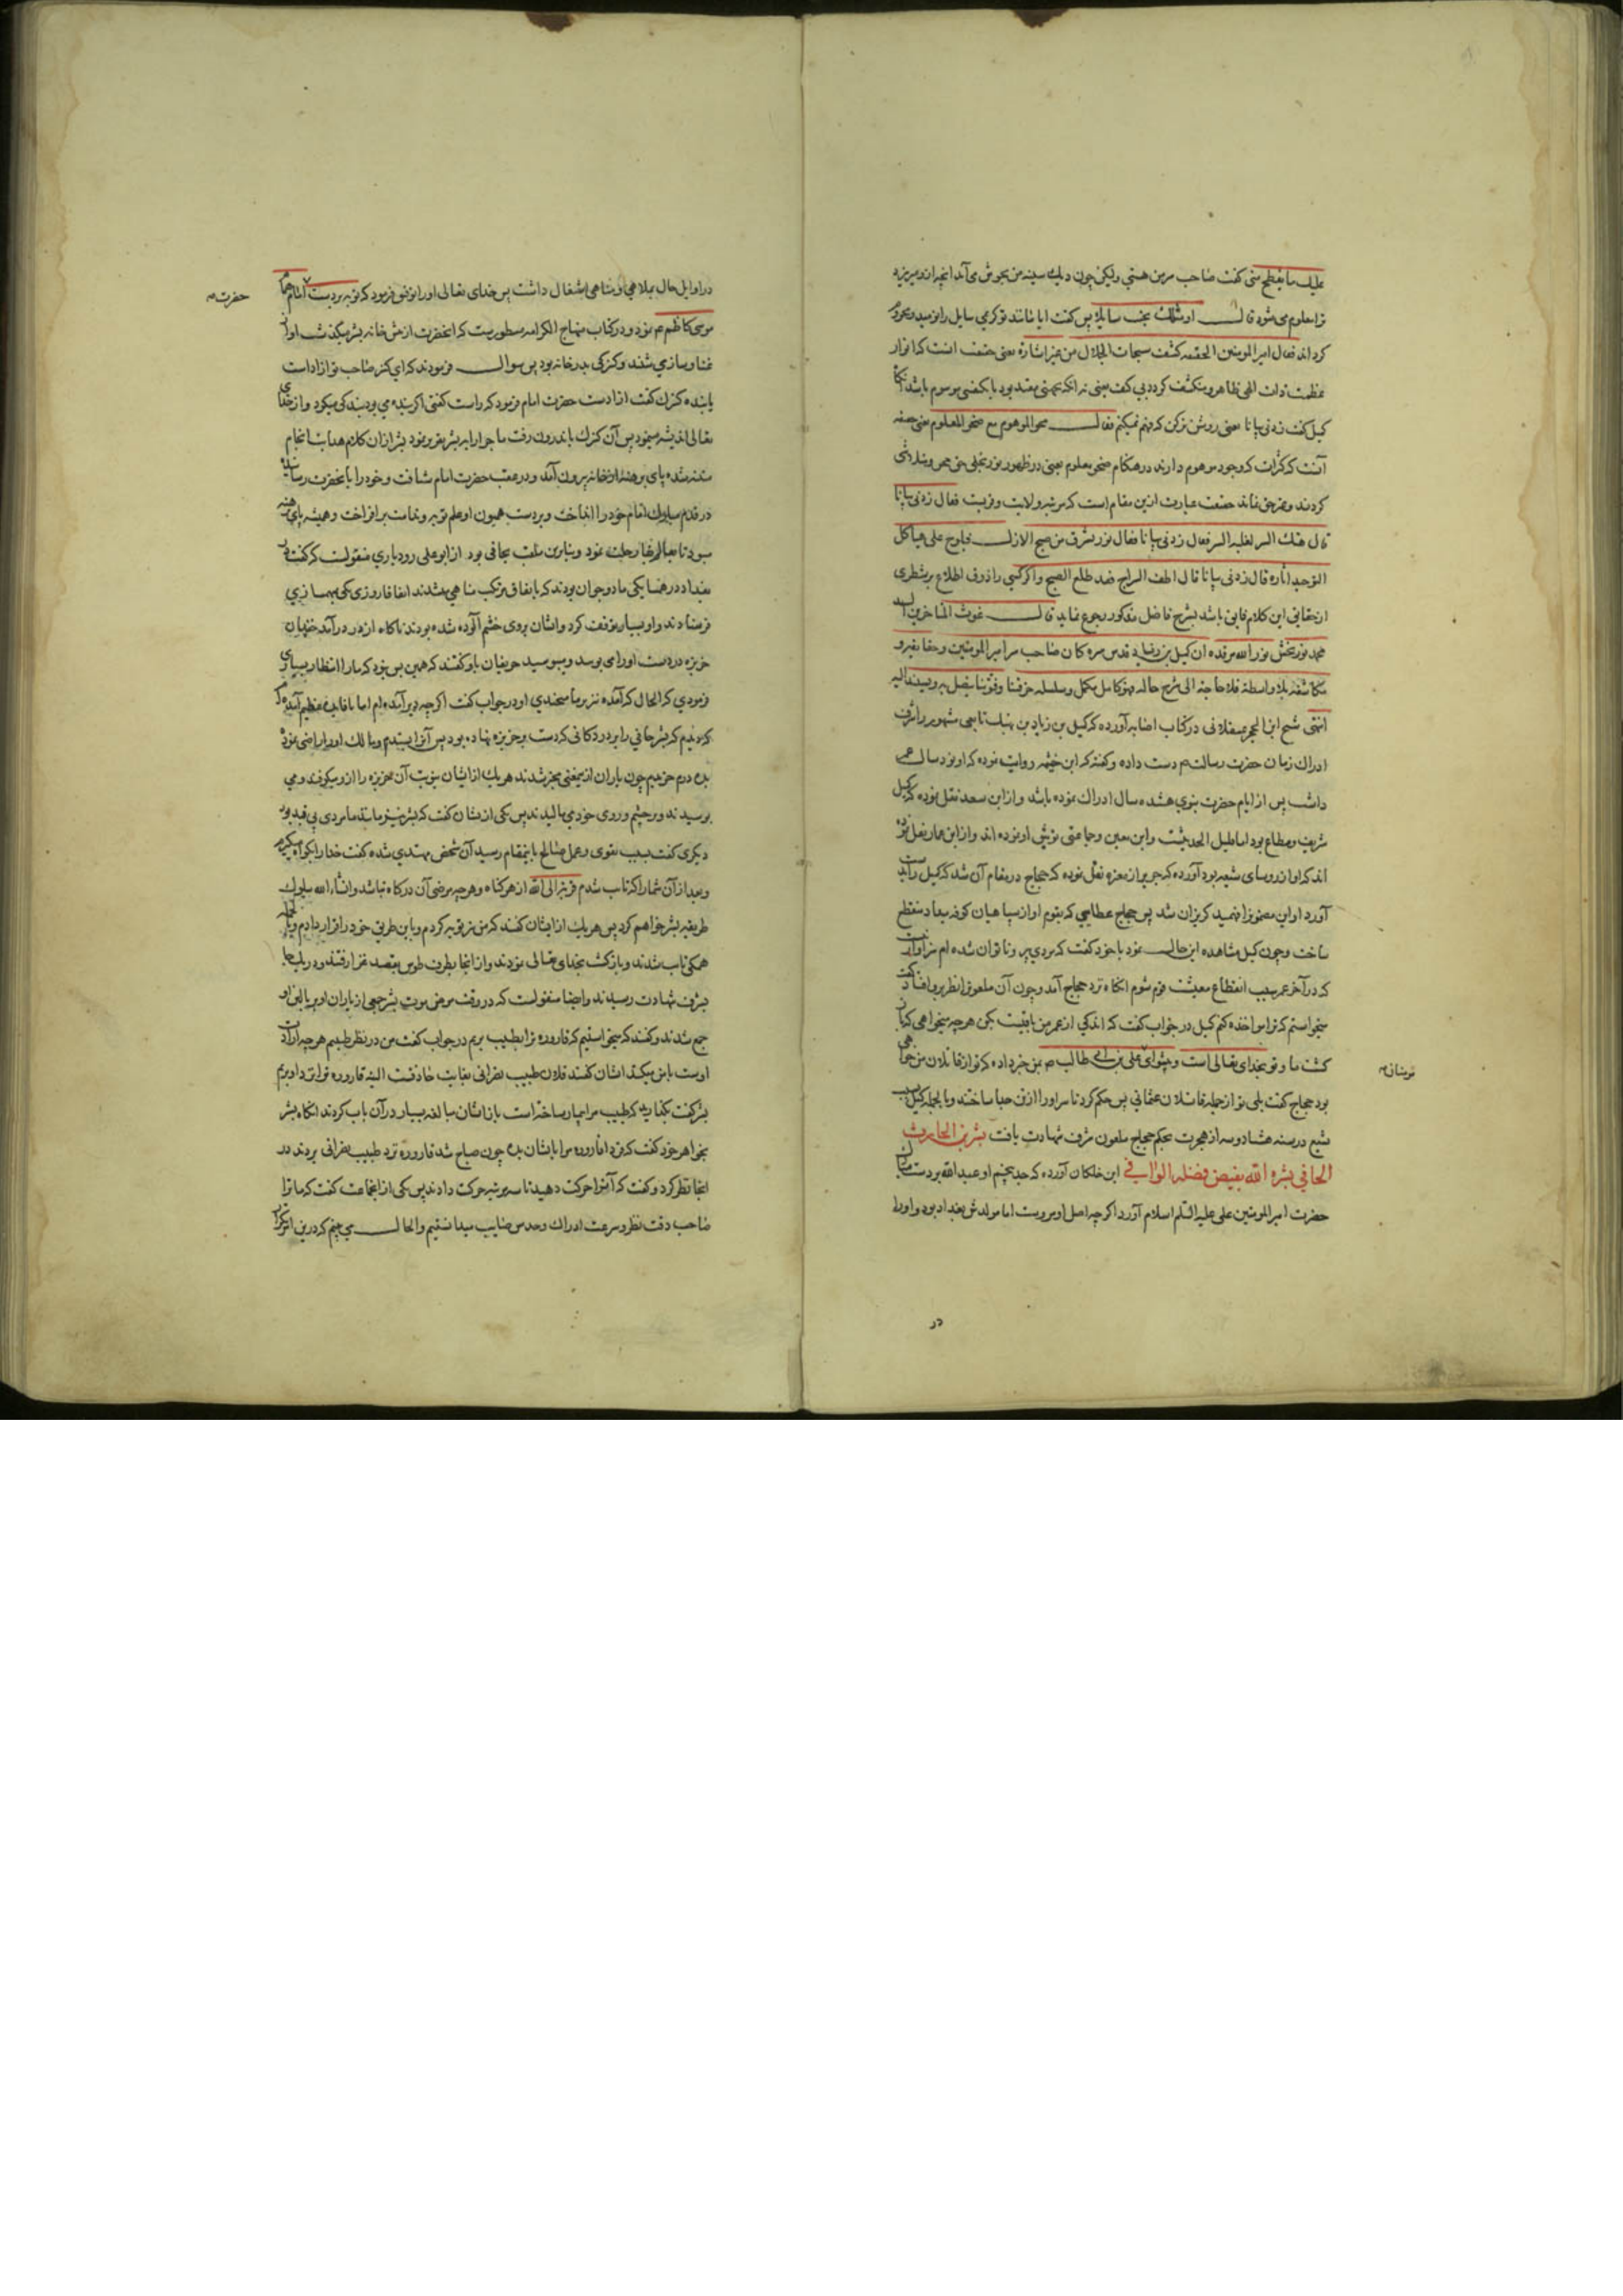 علیك ما یطفح منی گفت صاحب سر من هستی ولیکن چون دیك سینه من بجوش می‌آید آنچه ازو میریزد
ترا معلوم می‌شود قال او مثلك یخیب سایلا پس گفت ایا مانند تو کریمی سایل را نومید و محروم
کرداند فقال امیر المومنین الحقیقه کشف سبحات الجلال من غیر اشاره یعنی حقیقت انست که انوار
عظمت ذات الهی ظاهر و منکشف کردد بی کیف یعنی نه انکه بجهتی مقید بود یا بکیفی موسوم باشد
کمیل گفت زدنی بیانا یعنی روشن‌تر کن که فهم نمیکنم فقال محو الموهوم مع صحو المعلوم یعنی حقیقه
آنست که کثرات که وجود موهوم دارند در هنکام صحو معلوم یعنی در ظهور نور تجلی حق محو و متلاشی
کردند و غیر حق نماند حقیقت عبارت ازین مقام است که مرتبه ولایت و قربت فقال زدنی بیانا
قال هتك الستر لغلبه السر فقال زدنی بیانا فقال نور یشرق من صبح الازل فیلوح علی هیاکل
التوحید اثاره قال زدنی بیانا قال اطف السراج فقد طلع الصبح و اکر کسی را ذوق اطلاع بر شطری
از حقایق این کلام فایق باشد بشرح فاضل مذکور رجوع نماید قال غوث المتاخرین السید
محمد نوربخش نور الله مرقده ان کمیل بن زیاد قدس سره کان صاحب سر امیر المومنین و حقایقه و
مکاشفته بلا واسطة فلا حاجة الی شرح حاله فهو کامل مکمل و سلسله خرقتنا و فتوتنا یتصل به و یسند الیه
انتهی شیخ ابن الحجر عسقلانی در کتاب اصابه آورده که کمیل بن زیاد بن نهیك تابعی مشهور را شرف
ادراك زمان حضرت رسالت‌م دست داده و گفته که ابن خیثمه روایت نموده که او نود سال عمر
داشت پس از ایام حضرت نبوی هشده سال ادراك نموده باشد و از ابن سعد نقل نموده که کمیل
شریف و مطاع بود اما قلیل الحدیث و ابن معین و جماعتی توثیق او نموده اند و از ابن عمار نقل نموده
اند که او از روسای شیعه بود آورده که جریر از مغیره نقل نموده که حجاج در مقام آن شد که کمیل را بدست
آورد او این معنی را فهمید کریزان شد پس حجاج عطایی که بقوم او از سپاهیان کوفه میداد منقطع
ساخت و چون کمیل مشاهده این حال نمود با خود گفت که مردی پیر و ناتوان شده ام سزاوار نیست
که در آخر عمر سبب انقطاع معیشت قوم شوم انکاه نزد حجاج آمد و چون آن ملعون را نظر برو افتاد گفت
میخواستم که ترا مواخذه کنم کمیل در جواب گفت که اندکی از عمر من باقیست بکن هرچه میخواهی که بازن
کشت ما و تو بخدای تعالی است و پیشوای علی بن ابی طالب ص بمن خبر داده که تو از قاتلان من خواهی
بود حجاج گفت بلی تو از جمله قاتلان عثمانی پس حکم کرد تا سر او را از تن جدا ساختند و بالجمله کمیل سبب
تشیع در سنه هشتاد و سه از هجرت بحکم حجاج ملعون شرف شهادت یافت بشر بن الحارث
الحافی بشره الله بفیض فضله الوافی ابن خلکان آورده که جد پنجم او عبدالله بر دست
حضرت امیر المومنین علی علیه السلم اسلام آورد اکرچه اصل او مرویست اما مولدش بغداد بود و او را
در
در اوایل حال بملاهی و مناهی اشتغال داشت پس خدای تعالی او را توفیق فرمود که توبه بر دست امام
حضرت
موسی کاظم ع نمود و در کتاب منهاج الکرامه مسطوریست که انحضرت از پیش خانه بشر میکذشت آواز
غنا و ساز می شنید و کنیزکی بدر خانه بود پس سوال فرمودند که ای کنیز صاحب تو آزاد است
یا بنده کنیزك گفت ازادست حضرت امام فرمود که راست گفتی اکر بنده می بود بندکی میکرد و از خدای
تعالی اندیشه مینمود پس آن کنیزك باندرون رفت ماجرا را به بشر تقریر نمود بشر از ان کلام هدایت انجام
متنبه شده پای برهنه از خانه بیرون آمد و در عقب حضرت امام شتافت و خود را بانحضرت رسانیده
در قدم مبارك امام خود را انداخت و بر دست همیون او علم توبه و ندامت برافراخت و همیشه پای برهنه
میبود تا بعالم بقا رحلت نمود و بنابرین ملقب بحافی بود از ابو علی رودباری منقولست که گفت در
بغداد در همسایکی ما دو جوان بودند که باتفاق مرتکب مناهی می‌شدند اتفاقا روزی یکی بمهمسازی
فرستادند و او بسیار توقف کرد و ایشان بروی خشم آلوده شده بودند ناکاه از در درآمد خندان
خربزه در دست او را می بوسد و میبوسید حریفان باو گفتند که همین بس نبود که ما را انتظار بسیاری
فرمودی که الحال که آمده نیز بر ما میخندی او در جواب گفت اکرچه دیر آمده‌ام اما با فایده عظیم آمده‌ام
که دیدم که بشر حافی را بر در دکانی که دست بر خربزه نهاده بود پس آنرا ستدم و مالك او را راضی نمود
بده درم خریدیم چون یاران ازیمعنی مخبر شدند هریك ازایشان بنوبت آن خربزه را ازو میکرفتند و می
بوسیدند و بر چشم و روی خود می مالیدند پس یکی ازیشان گفت که بشر نیز مانند ما مردی بی قید بود
دیکری گفت بسبب تقوی و عمل صالح باینمقام رسید آن شخص مهتدی شده گفت خدا را بکواه میکیرم
و بعد از آن شما را که تایب شدم قربة الی الله از هر کناه و هرچه مرضی آن درکاه نباشد و انشاء الله سلوك
طریقه بشر خواهم کرد پس هریك ازایشان گفتند که من نیز توبه کردم و باین طریق خود را قرار دادم و بالجمله
همکی تایب شدند و بازکشت بخدای تعالی نمودند و از انجا بطرف طوس بقصد غزا رفتند و در
بشرف شهادت رسیدند و ایضا منقولست که در وقت مرض موت بشر جمعی از یاران او بر بالین او
جمع شدند و گفتند که میخواستیم که قاروره ترا بطبیب بریم در جواب گفت من در نظر طبیبم هرچه ارادت
اوست با من میکند ایشان گفتند فلان طبیب نصرانی بغایت حاذقست البته قاروره ترا نزد او بریم
بشر گفت بگذارید که طبیب مرا بیمار ساخته است باز ایشان مبالغه بسیار درآن باب کردند انکاه بشر
بخواهر خود گفت که فردا قاروره مرا بایشان بده چون صباح شد قاروره نزد طبیب نصرانی بردند در
انجا نظر کرد و گفت که آنرا حرکت دهید تا سه مرتبه حرکت دادند پس یکی از انجماعت گفت که ما ترا
صاحب دقت نظر و سرعت ادراك و حدس صایب میدانستیم و الحال می بینم که درین امر